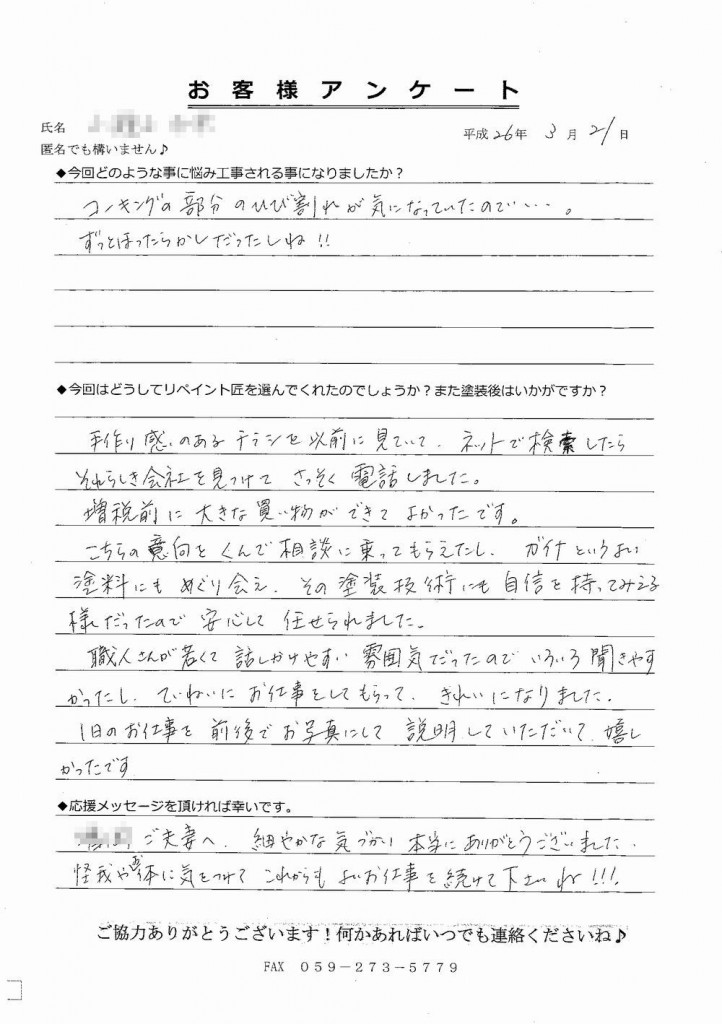 お客様アンケート
氏名
平成26年 3月 21日
匿名でも構いません♪
◆今回どのような事に悩み工事される事になりましたか？
コーキングの部分のひび割れが気になっていたので・・・。
ずっとほったらかしだったしね!!
◆今回はどうしてリペイント匠を選んでくれたのでしょうか？また塗装後はいかがですか？
手作り感のあるチラシを以前に見ていて、ネットで検索したら
それらしき会社を見つけて さっそく電話しました。
増税前に大きな買い物ができてよかったです。
こちらの意向をくんで相談に乗ってもらえたし、ガイナというよい
塗料にもめぐり会え、その塗装技術にも自信を持ってみえる
様だったので安心して任せられました。
職人さんが若くて話しかけやすい雰囲気だったのでいろいろ聞きやす
かったし、ていねいにお仕事をしてもらって、きれいになりました。
1日のお仕事を前後でお写真にして説明していただいて、嬉し
かったです
◆応援メッセージを頂ければ幸いです。
ご夫妻へ、細やかな気づかい本当にありがとうございました。
怪我やお体に気をつけてこれからもよいお仕事を続けて下さいね!!!
ご協力ありがとうございます！何かあればいつでも連絡くださいね♪
FAX 059-273-5779